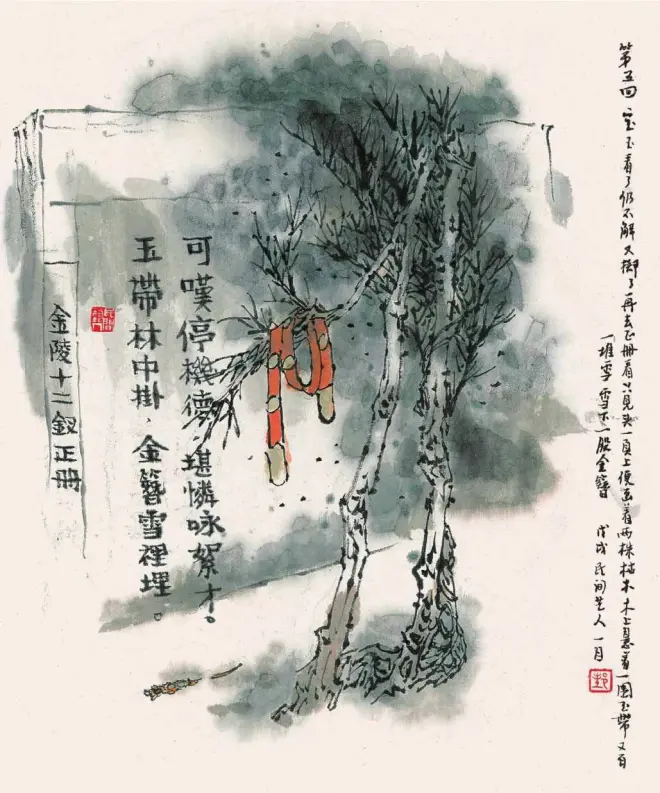 第五回 宝玉看了仍不解又掷了再去正册看只见头一页上便画着两株枯木木上悬着一围玉带又有
一堆雪雪下一股金簪 戊戌民间艺人一月
可嘆停機德,堪憐咏絮才。
玉帶林中掛,金簪雪裡埋。
金陵十二釵正册